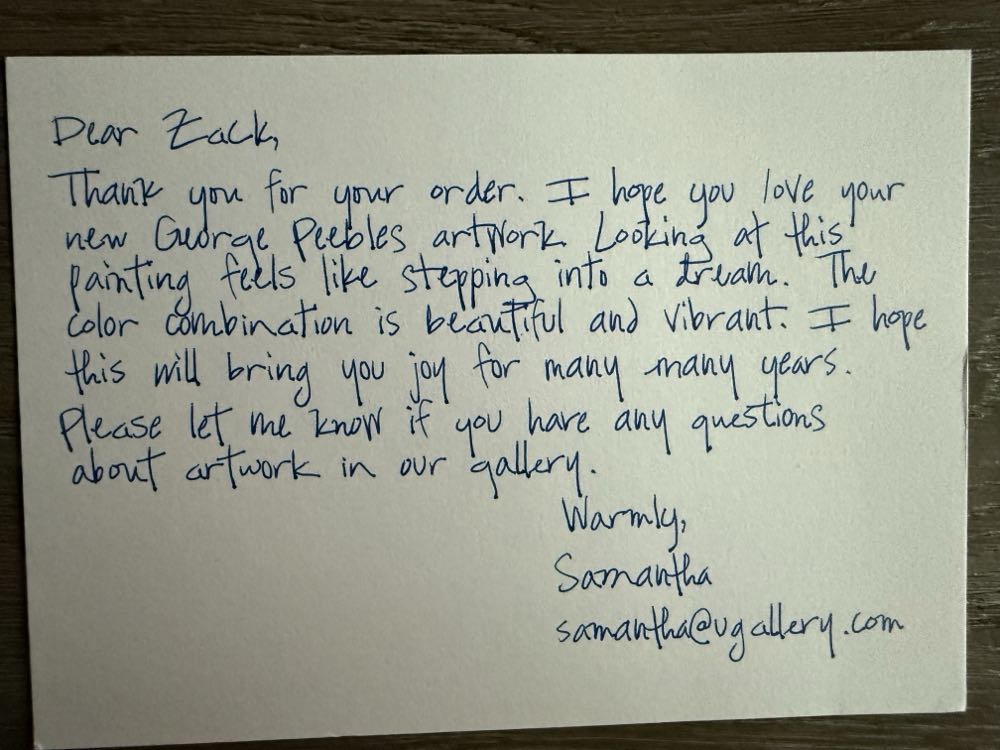 Dear Zack,
Thank you for your order. I hope you love your
new George Peebles artwork. Looking at this
painting feels like stepping into a dream. The
color combination is beautiful and vibrant. I hope
this will bring you joy for many many years.
Please let me know if you have any questions
about artwork in our gallery.
Warmly,
Samantha
samantha@ugallery.com